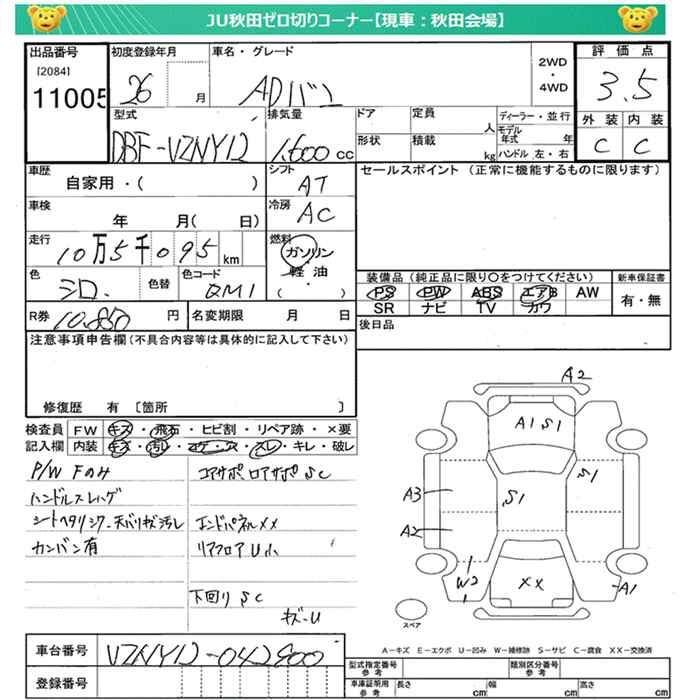 JU秋田ゼロ切りコーナー【現車：秋田会場】
出品番号 初度登録年月 車名・グレード 2WD・4WD 評価点
[2084]
11005 26 月 ADバン 3.5
型式 排気量 ドア 定員 人 ディーラー・並行 外装 内装
DBF-VZNY12 1,600 cc 形状 積載 kg モデル年式 年 ハンドル 左・右 C C
車歴 シフト セールスポイント（正常に機能するものに限ります）
自家用・（ ） AT
車検 冷房
年 月（ 日） AC
走行 燃料
10万5千095km ガソリン・軽油・（ ）
色 色替 色コード 装備品（純正品に限り○をつけてください） 新車保証書
シロ. QM1 PS PW ABS エアB AW 有・無
SR ナビ TV カワ
R券 10,850 円 名変期限 月 日 後日品
注意事項申告欄（不具合内容等は具体的に記入して下さい）
修復歴 有 〔箇所 〕
検査員記入欄 FW キズ・飛石・ヒビ割・リペア跡・×要
内装 キズ・汚レ・コゲ・穴・スレ・キレ・破レ
P/W Fのみ コアサポ.ロアサポ SC
ハンドルスレハゲ
シートヘタリシワ-天バリキズ汚レ エンドパネルXX
カンバン有 リアフロアU小
下回り SC
キズ-U
A2
A1 S1
S1
S1
A3
A2
W2
XX
A1
スペア
A－キズ E－エクボ U－凹み W－補修跡 S－サビ C－腐食 XX－交換済
車台番号 VZNY12-042900
登録番号
型式指定番号 参考 類別区分番号 参考
車庫証明用 参考 長さ cm 幅 cm 高さ cm